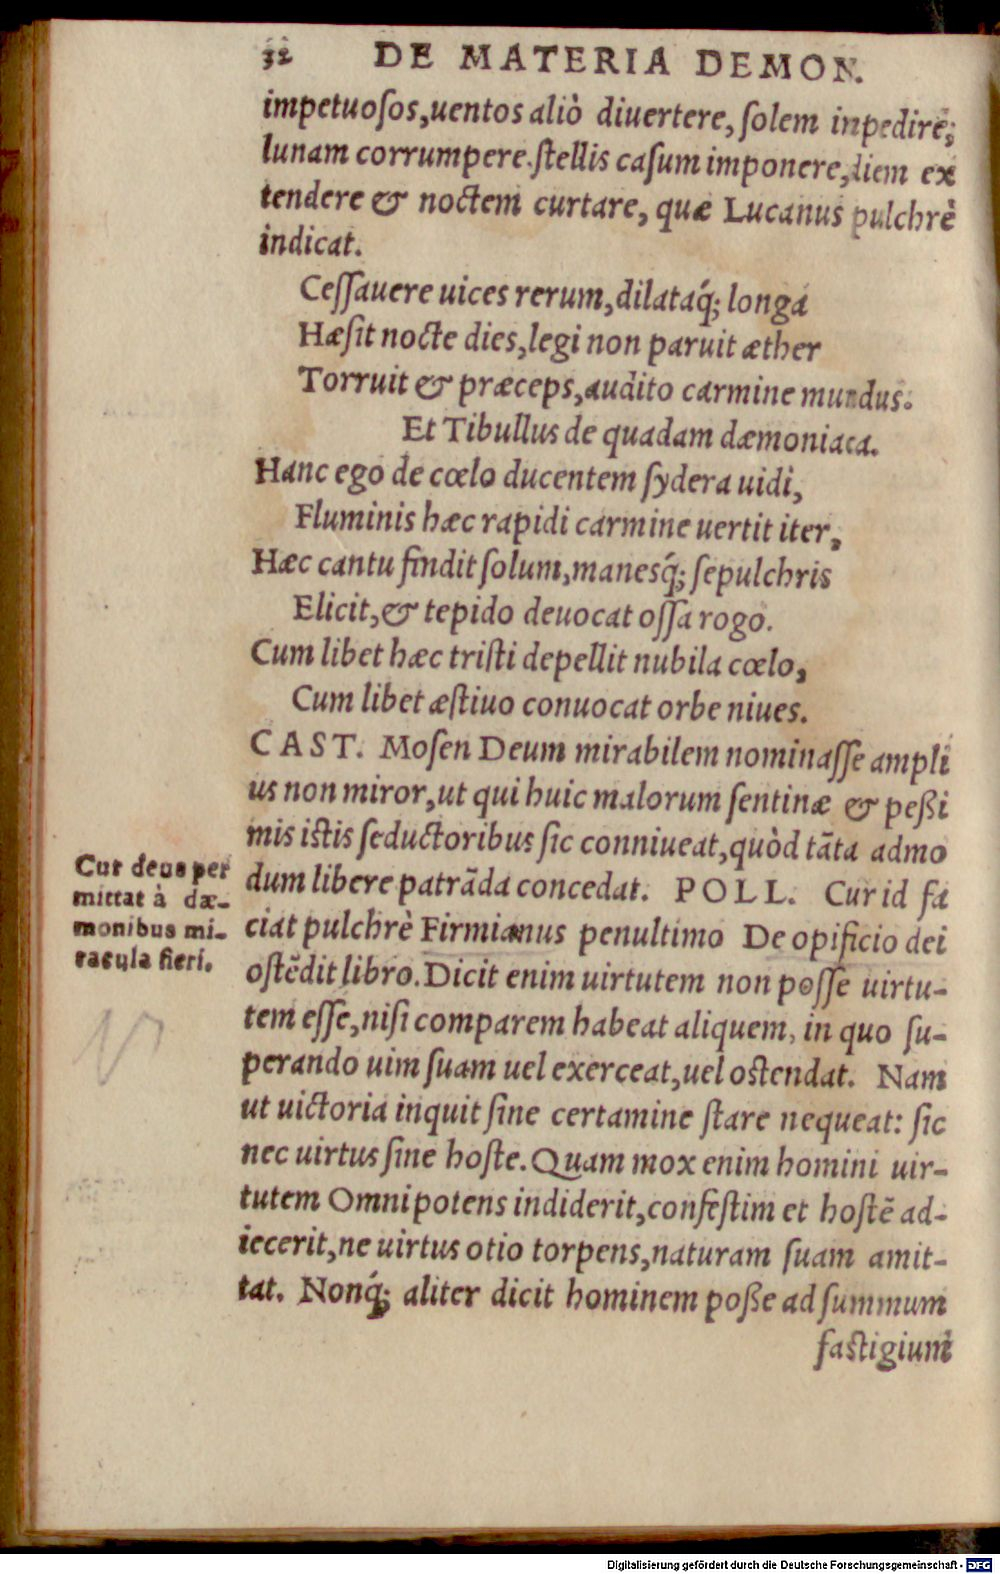 32 DE MATERIA DEMON.
impetuoſos,uentos aliò diuertere, ſolem inpedire,
lunam corrumpere.ſtellis caſum imponere,diem ex
tendere & noctem curtare, quæ Lucanus pulchrè
indicat.
Ceſſauere uices rerum,dilataq́; longa
Hæſit nocte dies,legi non paruit æther
Torruit & præceps,audito carmine mundus.
Et Tibullus de quadam dæmoniaca.
Hanc ego de cœlo ducentem ſydera uidi,
Fluminis hæc rapidi carmine uertit iter,
Hæc cantu findit ſolum,manesq́; ſepulchris
Elicit,& tepido deuocat oſſa rogo.
Cum libet hæc triſti depellit nubila cœlo,
Cum libet æſtiuo conuocat orbe niues.
CAST. Moſen Deum mirabilem nominaſſe ampli
us non miror,ut qui huic malorum ſentinæ & peßi
mis istis ſeductoribus ſic conniueat,quòd tāta admo
dum libere patrāda concedat. POLL. Cur id fa
ciat pulchrè Firmianus penultimo De opificio dei
oſtēdit libro.Dicit enim uirtutem non poſſe uirtu-
tem eſſe,niſi comparem habeat aliquem, in quo ſu-
perando uim ſuam uel exerceat,uel ostendat. Nam
ut uictoria inquit ſine certamine ſtare nequeat: ſic
nec uirtus ſine hoſte.Quam mox enim homini uir-
tutem Omnipotens indiderit,confeſtim et hoſtē ad-
iecerit,ne uirtus otio torpens,naturam ſuam amit-
tat. Nonq́; aliter dicit hominem poße ad ſummum
faſtigium
Cur deus per
mittat à dæ-
monibus mi-
racula fieri.
Digitalisierung gefördert durch die Deutsche Forschungsgemeinschaft - DFG